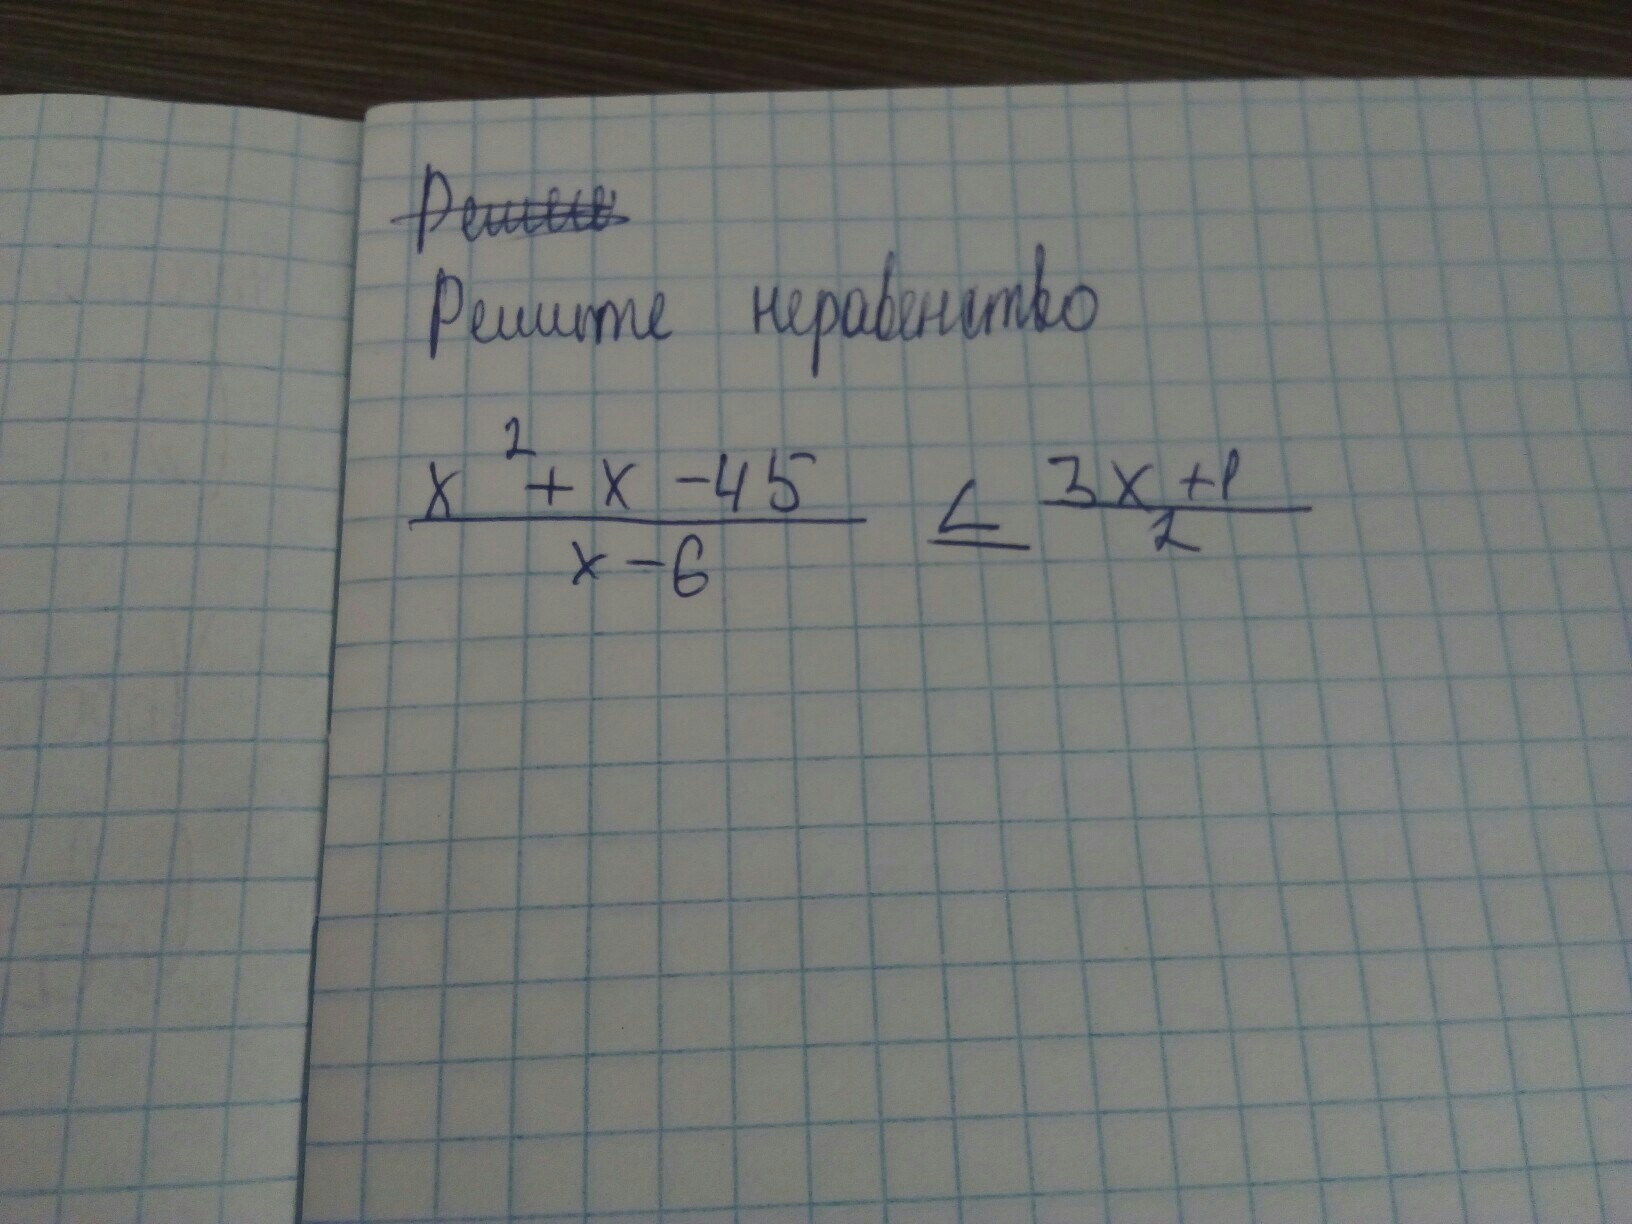 Решите неравенство
x² + x - 45 / x - 6 ≤ 3x + 1 / 2